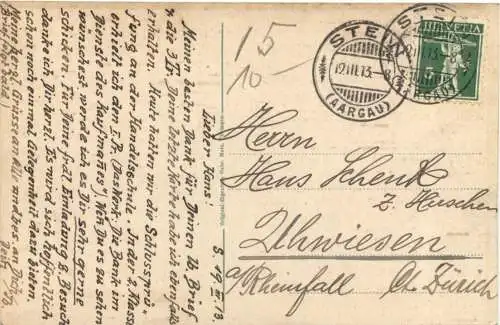 S. 19. III. 13.
Lieber Hans!
Meinen besten Dank für Deinen lb. Brief
v. die 3 Deine letzte Karte habe ich ebenfalls
erhalten. Heute hatten wir die Schlussprü-
fung an der Handelsschule. In der 2. Klasse
erhielt ich den I. P. (Das Werk: Die Bank im
Dienste des Kaufmanns) Wenn Du es zu sehen
wünschest werde ich es Dir sehr gerne
schicken. Für Deine frdl. Einladung z. Besuch
danke ich Dir herzl. Es wird sich hoffentlich
schon noch einmal Gelegenheit dazu bieten.
Herzliche Grüsse an Alle und an Dich,
15
10.-
STEIN
19.III.13-8
(AARGAU)
HELVETIA
Herrn
Hans Schenk
z. Hirschen
Uhwiesen
a/Rheinfall Ct. Zürich